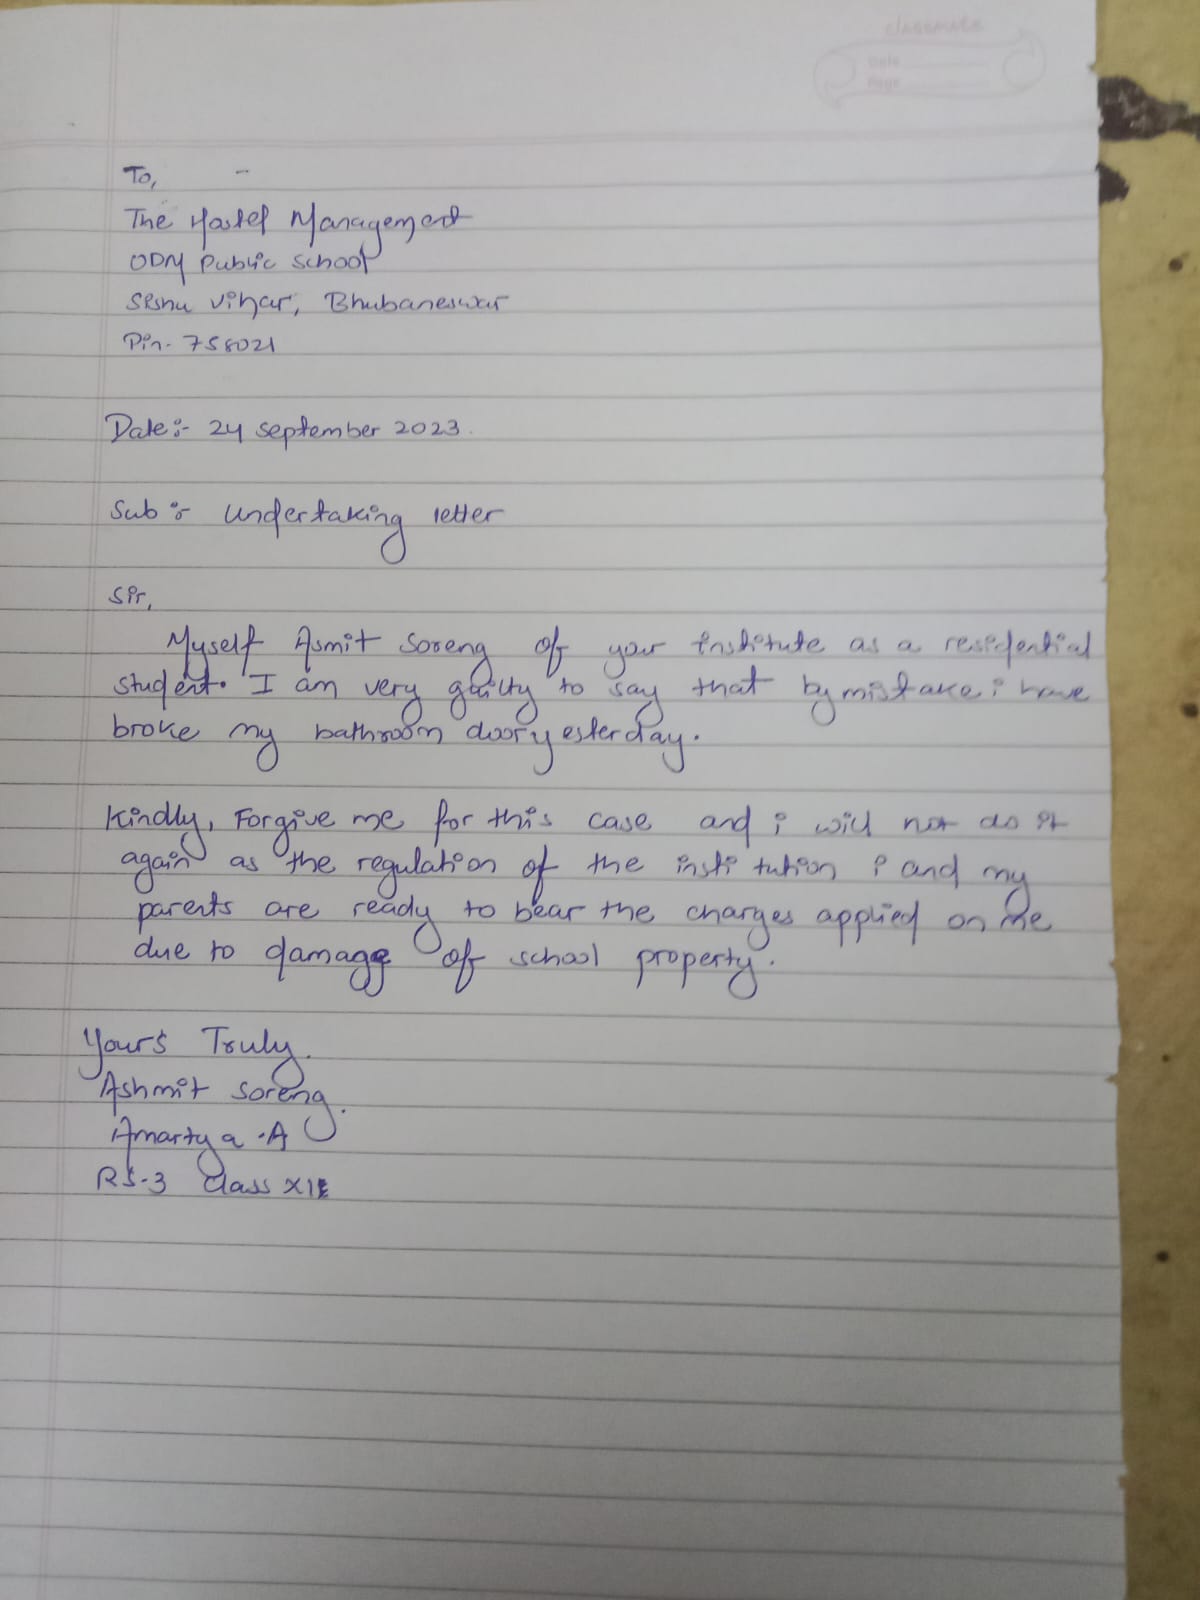 classmate
Date
Page
To,
The Hostel Management
ODM Public School
Sishu Vihar, Bhubaneswar
Pin- 758021
Date:- 24 September 2023.
Sub:- Undertaking letter
Sir,
Myself Asmit Soreng of your institute as a residential
student. I am very guilty to say that by mistake i have
broke my bathroom door yesterday.
Kindly, Forgive me for this case and i will not do it
again as the regulation of the institution i and my
parents are ready to bear the charges applied on me
due to damage of school property.
Yours Truly.
Ashmit Soreng.
Amartya -A
RS-3 Class